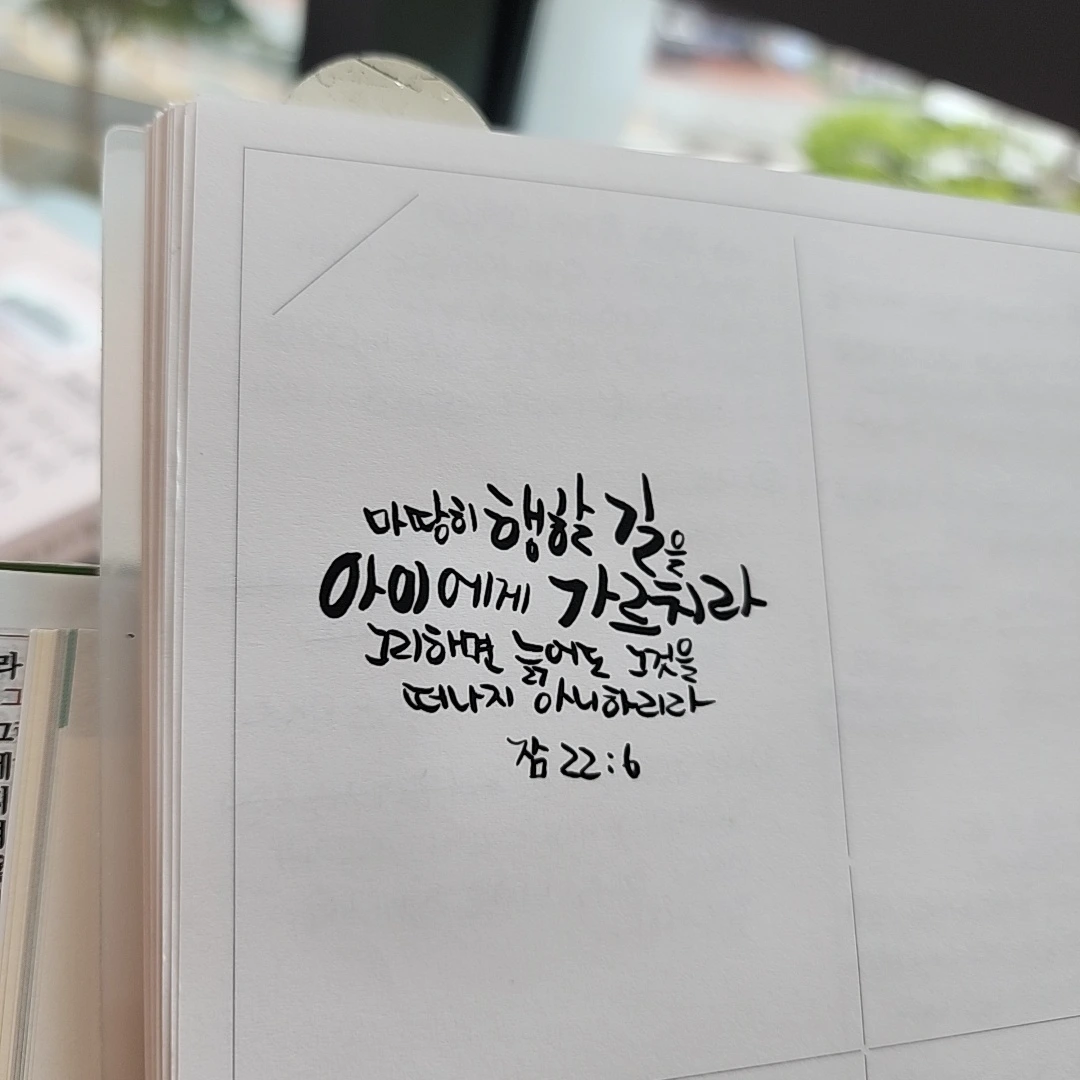 마땅히 행할 길을
아이에게 가르치라
그리하면 늙어도 그것을
떠나지 아니하리라
잠 22:6